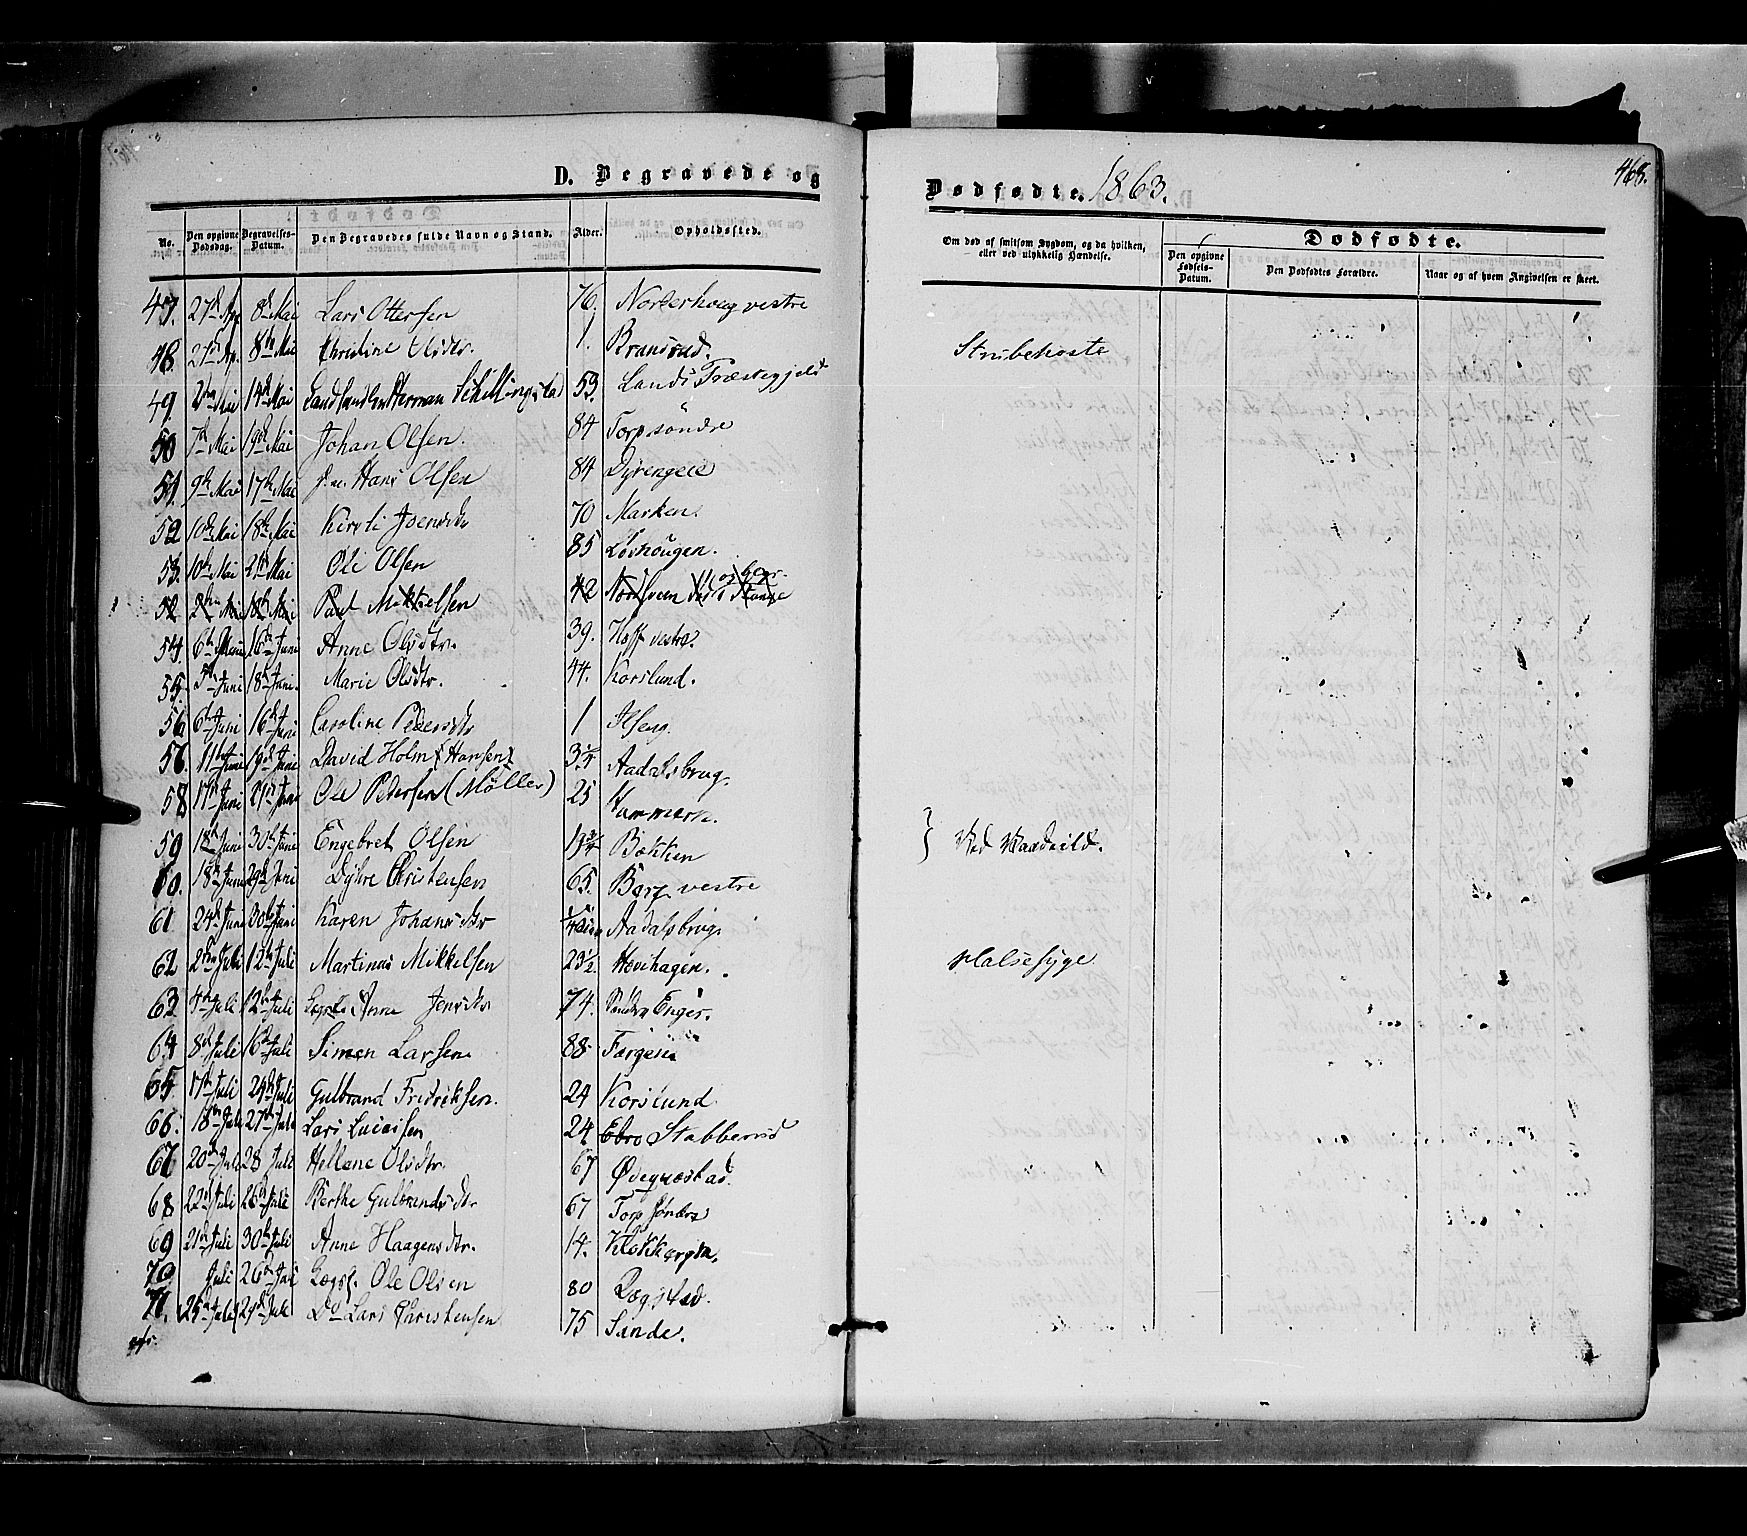 D. Begravede og
Dødfødte. 1863.
468.
No. Den opgivne Dødsdag. Begravelses-Datum. Den Begravedes fulde Navn og Stand. Alder. Opholdssted.
Om død af smitsom Sygdom, og da hvilken, eller ved ulykkelig Hændelse.
Dødfødte.
Den opgivne Fødsels-Datum. Den Dødfødtes Forældre. Naar og af hvem Angivelsen er skeet.
47. 27de Ap. 8de Mai Lars Ottersen 76. Norderhoug vestre
48. 27de Ap. 8de Mai Christine Olsdtr. 1. Bransrud. Strubehoste
49. 2den Mai 14de Mai Herman Schellingstad 53. Lands Præstegjeld
50 7de Mai 19de Mai Johan Olsen. 84 Torp søndre
51. 9de Mai 17de Mai Hans Olsen 84
52 10de Mai 18de Mai Kirsti Joensdtr 70 Marken.
53. 10de Mai 21de Mai Ole Olsen 85 Løvhougen.
52 2den Mai 18de Mai Paul Mikkelsen 42
54. 6te 16de Juni Anne Olsdtr. 39. Hoff vestre.
55. 5te Juni 18de Juni. Marie Olsdtr. 44. Korslund.
56 6te Juni 16de Juni Caroline Pedersdtr 1 Ilseng.
56. 11te Juni 19de Juni David Holm (Hansen) 3 1/4 Aadalsbrug.
58 17de Juni 21de Juni Ole Pedersen (Møller) 25 Kammern.
59 18de Juni 30te Juni Engebret Olsen 19 3/4 Bakken } Ved Vaadeild.
60. 18de Juni 29de Juni Dyhre Christensen 65. Berg vestre
61 24de Juni 30te Juni Karen Johansdtr Aadalsbrug.
62 2den Juli 12te Juli Martinus Mikkelsen 2 1/2 Hovihagen. Halsesyge
63 4de Juli 12te Juli Anne Jensdtr 74. Enger.
64 8de Juli 16de Juli Simen Larsen 88
65. 17de Juli 24de Juli Gulbrand Fredriksen. 24 Korslund
66. 18de Juli 27de Juli Lars 24 Ebro Stabberud
67 20de Juli 28 Juli Hellene Olsdtr. 67 Ødegaardstad.
68 22de Juli 26de Juli Berthe Gulbrandsdtr 67 Torp søndre
69 21de Juli 30te Juli Anne Haagensdtr. 14. Klokkergrn.
70 Juli 26de Juli Lægsl. Ole Olsen 80 Rægstad.
71. 25de Juli 29de Juli Do Lars Christensen 75 Sande.